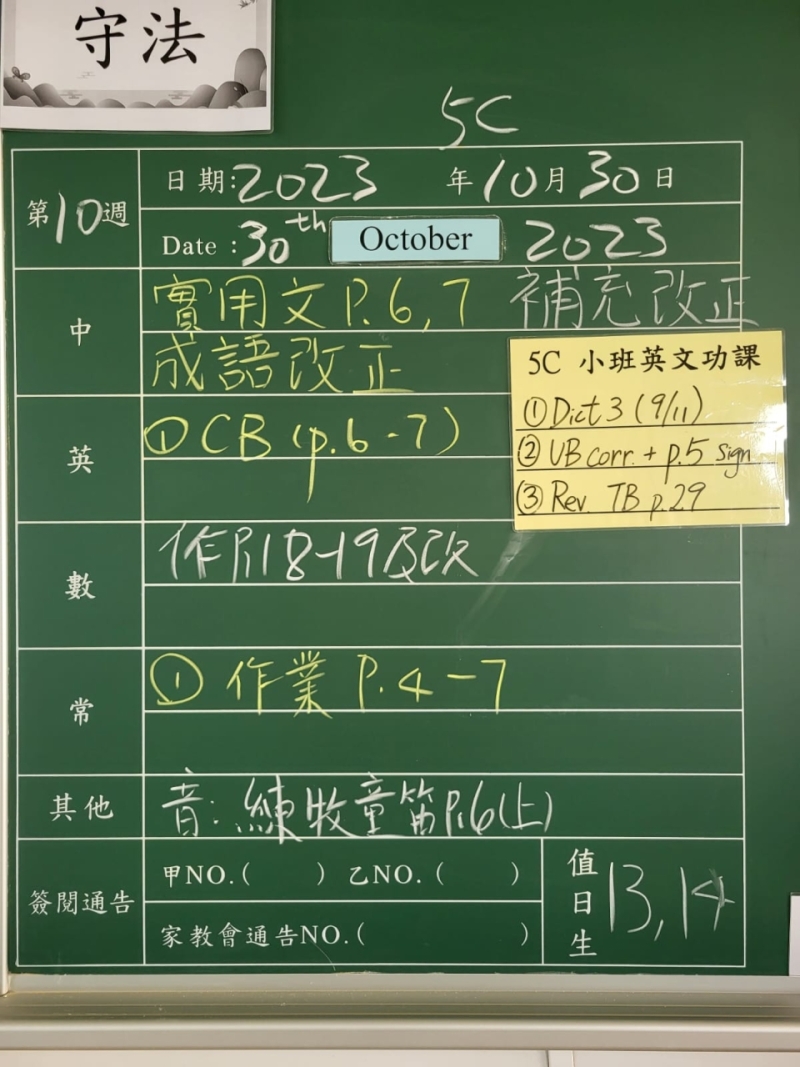 守法
5C
第10週
日期:2023 年10月30日
Date :30th October 2023
中
實用文P.6,7 補充改正
成語改正
5C 小班英文功課
①Dict 3 (9/11)
②UB corr. + p.5 sign
③Rev. TB p.29
英
①CB (p.6-7)
數
作P.18-19及改
常
① 作業 P.4-7
其他
音: 練牧童笛P.6(上)
簽閱通告
甲NO.( ) 乙NO.( )
家教會通告NO.( )
值日生
13,14